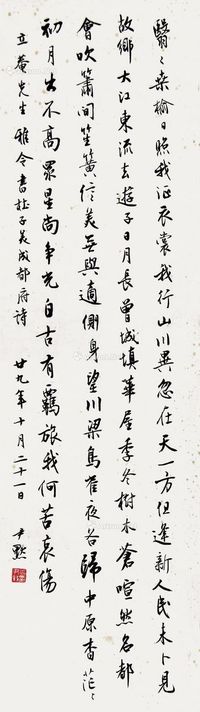 翳翳桑榆日照我征衣裳我行山川異忽在天一方但逢新人民未卜見
故鄉大江東流去遊子日月長曾城填華屋季冬樹木蒼喧然名都
會吹簫間笙簧信美無與適側身望川梁鳥雀夜各歸中原杳茫茫
初月出不高眾星尚爭光自古有羈旅我何苦哀傷
立菴先生雅令書杜子美成都府詩
廿九年十月二十一日 尹默